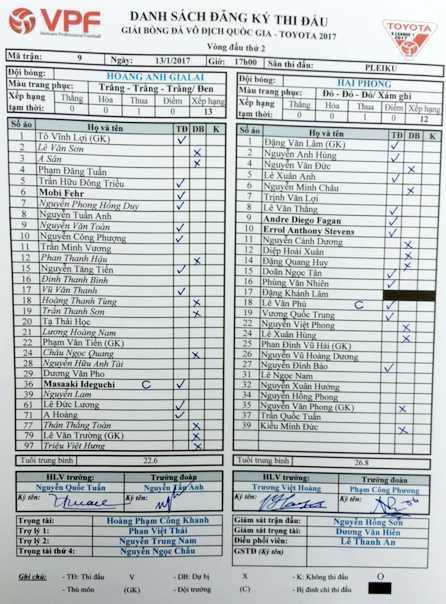 VPF
Vietnam Professional Football
DANH SÁCH ĐĂNG KÝ THI ĐẤU
GIẢI BÓNG ĐÁ VÔ ĐỊCH QUỐC GIA - TOYOTA 2017
Vòng đấu thứ 2
TOYOTA
V.LEAGUE 1
2017
Mã trận: 9 Ngày: 13/1/2017 Giờ: 17h00 Sân thi đấu: PLEIKU
Đội bóng: HOÀNG ANH GIALAI
Màu trang phục: Trắng - Trắng - Trắng/ Đen
Xếp hạng tạm thời: Thắng Hòa Thua Điểm Xếp hạng
0 0 1 0 13
Số áo Họ và tên TĐ DB K
1 Tô Vĩnh Lợi (GK) ✓
2 Lê Văn Sơn X
3 A Sân X
4 Phạm Đăng Tuấn
5 Trần Hữu Đông Triều ✓
6 Mobi Fehr ✓
7 Nguyễn Phong Hồng Duy ✓
8 Nguyễn Tuấn Anh
9 Nguyễn Văn Toàn ✓
10 Nguyễn Công Phượng ✓
11 Trần Minh Vương
12 Phan Thanh Hậu X
15 Nguyễn Tăng Tiến ✓
16 Đinh Thanh Bình
17 Vũ Văn Thanh ✓
18 Hoàng Thanh Tùng X
19 Trần Thanh Sơn X
20 Tạ Thái Học
21 Lương Hoàng Nam
22 Phạm Văn Tiến (GK)
24 Châu Ngọc Quang X
28 Nguyễn Hữu Anh Tài
29 Dương Văn Pho
36 Masaaki Ideguchi C ✓
39 Nguyễn Lam
61 Lê Đức Lương ✓
71 A Hoàng ✓
77 Thân Thắng Toàn X
79 Lê Văn Trường (GK) X
97 Triệu Việt Hưng X
Tuổi trung bình 22.6
HLV trưởng Trưởng đoàn
Nguyễn Quốc Tuấn Nguyễn Tấn Anh
Ký tên: Ký tên:
Đội bóng: HẢI PHÒNG
Màu trang phục: Đỏ - Đỏ - Đỏ/ Xám ghi
Xếp hạng tạm thời: Thắng Hòa Thua Điểm Xếp hạng
0 0 1 0 12
Số áo Họ và tên TĐ DB K
1 Đặng Văn Lâm (GK) ✓
2 Nguyễn Anh Hùng ✓
4 Nguyễn Văn Đức X
5 Lê Xuân Anh ✓
6 Nguyễn Minh Châu X
7 Trịnh Văn Lợi
8 Lê Văn Thắng ✓
9 Andre Diego Fagan ✓
10 Errol Anthony Stevens ✓
11 Nguyễn Cảnh Dương X
12 Diệp Hoài Xuân X
14 Đặng Quang Huy X
15 Doãn Ngọc Tân ✓
16 Phùng Văn Nhiên ✓
17 Đặng Khánh Lâm
18 Lê Văn Phú C ✓
19 Vương Quốc Trung ✓
22 Nguyễn Việt Phong X
24 Lê Xuân Hùng X
25 Phan Đình Vũ Hải (GK)
26 Nguyễn Vũ Hoàng Dương
27 Nguyễn Đình Bảo ✓
31 Lê Ngọc Nam
32 Nguyễn Xuân Hướng
34 Nguyễn Hồng Phong
35 Nguyễn Văn Phong (GK) X
37 Trần Quốc Tuấn
39 Kiều Minh Đức X
Tuổi trung bình 26.8
HLV trưởng Trưởng đoàn
Trương Việt Hoàng Phạm Công Phương
Ký tên: Ký tên:
Trọng tài: Hoàng Phạm Công Khanh
Trợ lý 1: Phan Việt Thái
Trợ lý 2: Nguyễn Trung Nam
Trọng tài thứ 4: Nguyễn Ngọc Châu
Giám sát trận đấu: Nguyễn Hồng Sơn
Giám sát trọng tài: Dương Văn Hiền
Điều phối viên: Lê Thanh An
GSTĐ (Ký tên)
Ghi chú: - TĐ: Thi đấu V - DB: Dự bị X - K: Không thi đấu O
- Thủ môn (GK) - Đội trưởng (C) - Bị đình chỉ thi đấu